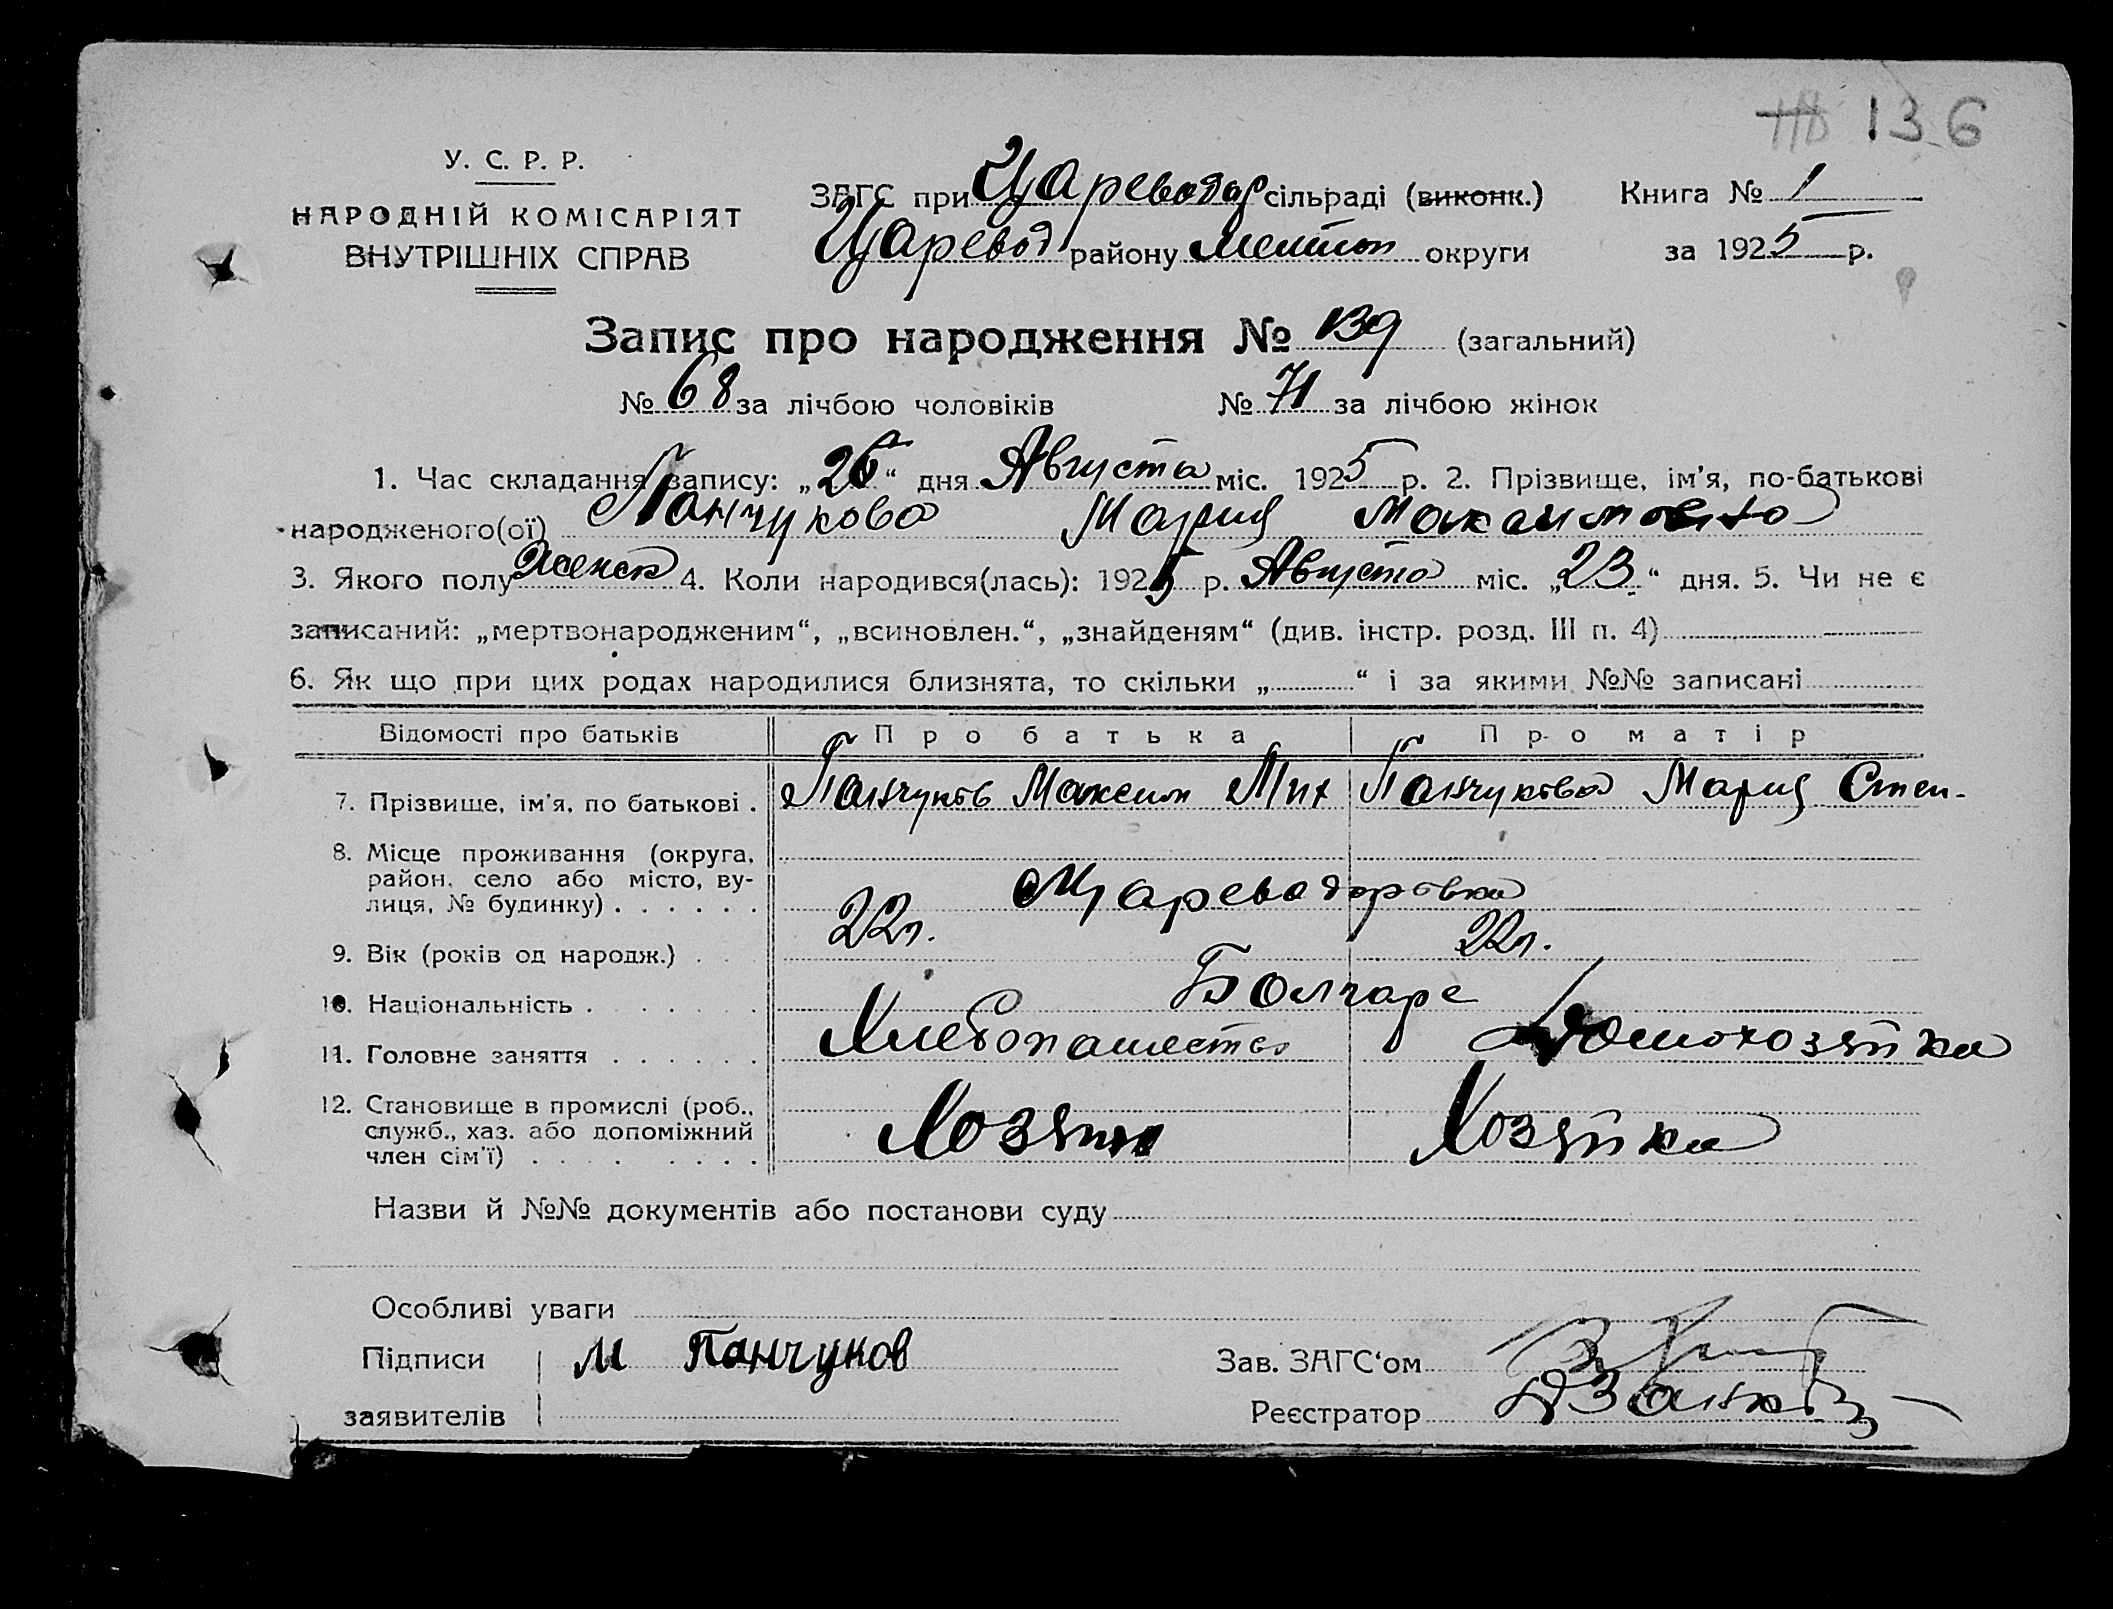 136
У. С. Р. Р.
НАРОДНІЙ КОМІСАРІЯТ
ВНУТРІШНІХ СПРАВ
ЗАГС при Цареводар сільраді (виконк.)
Царевод району Мелитоп округи
Книга № 1
за 1925 р.
Запис про народження № 139 (загальний)
№ 68 за лічбою чоловіків № 71 за лічбою жінок
1. Час складання запису: „26“ дня Августа міс. 1925 р. 2. Прізвище, ім'я, по-батькові
народженого(ої) Панчукова Мария Максимовна
3. Якого полу Женск 4. Коли народився(лась): 1925 р. Августа міс. „23“ дня. 5. Чи не є
записаний: „мертвонародженим“, „всиновлен.“, „знайденям“ (див. інстр. розд. III п. 4)
6. Як що при цих родах народилися близнята, то скільки „ “ і за якими №№ записані
Відомості про батьків Про батька Про матір
7. Прізвище, ім'я, по батькові . Панчуков Максим Мих Панчукова Мария Степ.
8. Місце проживання (округа,
район, село або місто, ву-
лиця, № будинку) . . . . . . Цареводаровка
9. Вік (років од народж.) . 22л. 22л.
10. Національність . . . . . Болгаре
11. Головне заняття . . . . . Хлебопашество Домохозяйка
12. Становище в промислі (роб.,
служб., хаз. або допоміжний
член сім'ї) . . . . . . . Хозяин Хозяйка
Назви й №№ документів або постанови суду
Особливі уваги
Підписи М Панчуков Зав. ЗАГС‘ом
заявителів Реєстратор